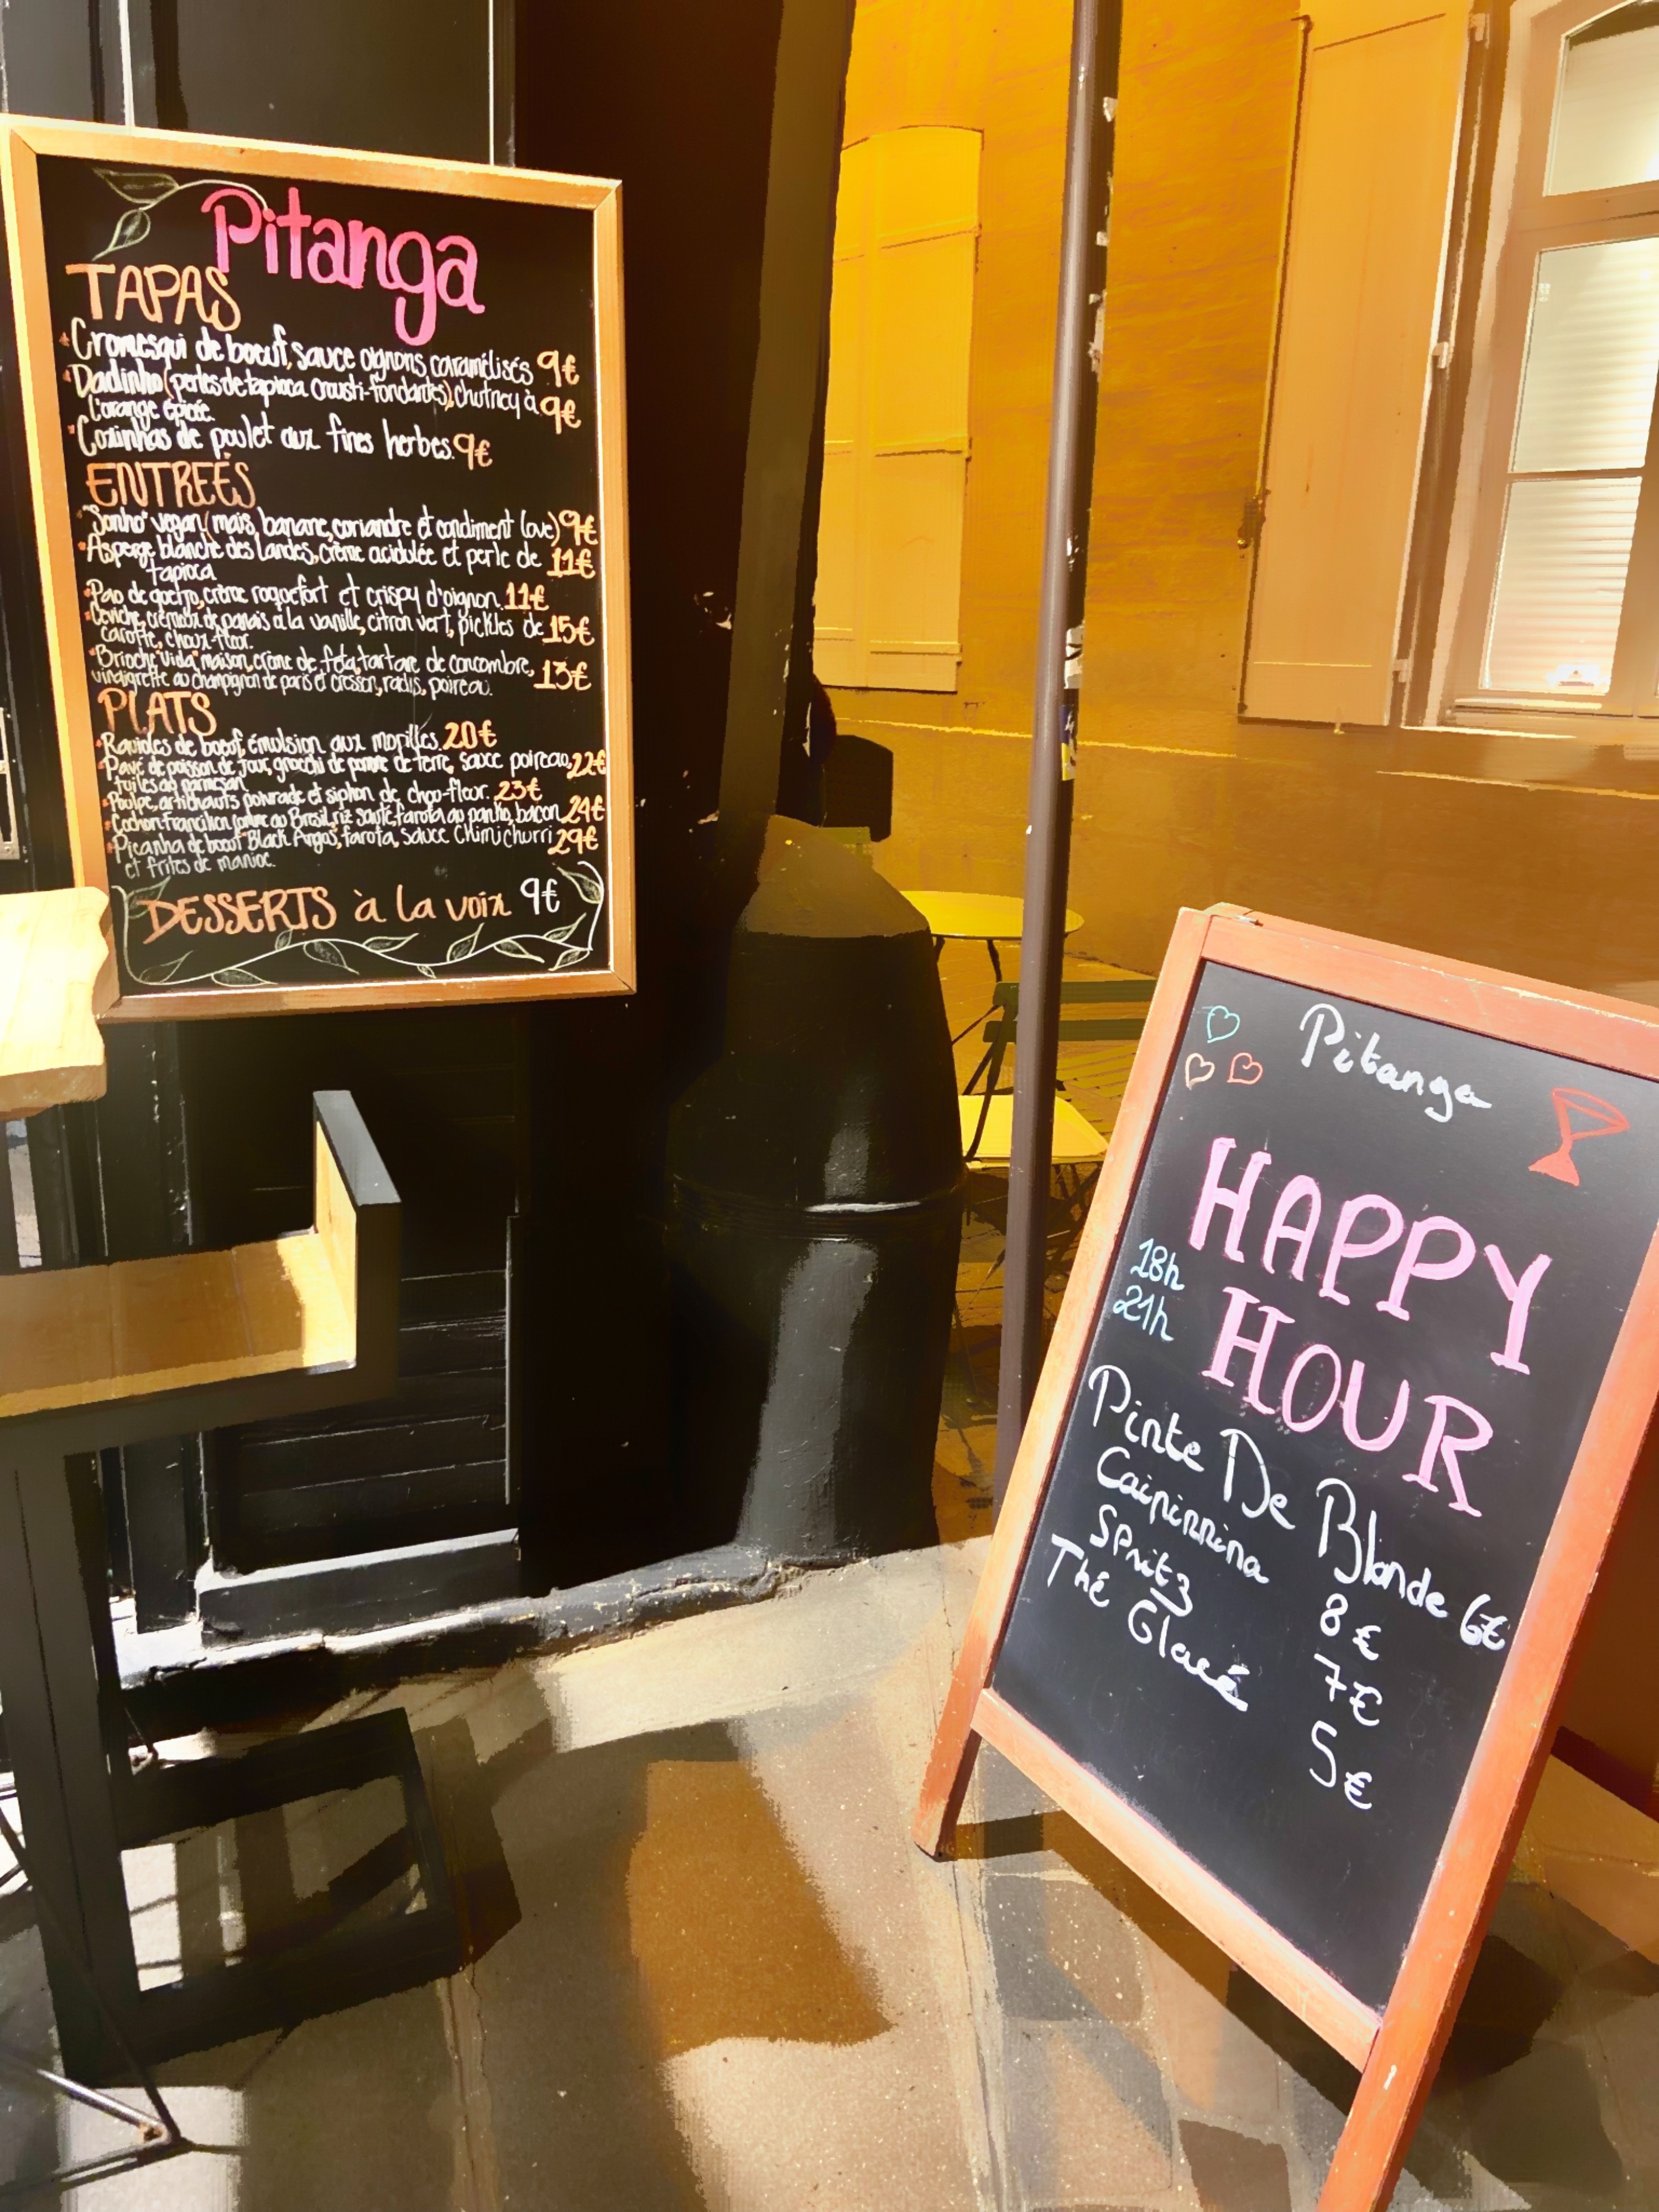 Pitanga
TAPAS
Cromesqui de boeuf, sauce oignons caramélisés 9€
Dadinho (perles de tapioca crousti-fondantes), chutney à 9€
l'orange épicée.
Coxinhas de poulet aux fines herbes. 9€
ENTREÉS
"Sonho" vegan (maïs, banane, coriandre et condiment love) 9€
Asperge blanche des Landes, crème acidulée et perle de 11€
tapioca
Pao de queijo, crème roquefort et crispy d'oignon. 11€
Ceviche, crémeux de panais à la vanille, citron vert, pickles de 15€
carotte, choux-fleur.
Brioche "Vida" maison, crème de feta, tartare de concombre, 13€
vinaigrette au champignon de paris et cresson, radis, poireau.
PLATS
Ravioles de boeuf, émulsion aux morilles. 20€
Pavé de poisson de Jour, gnocchi de pomme de terre, sauce poireau, 22€
tuiles au parmesan
Poulpe, artichauts poivrade et siphon de chou-fleur. 23€
Cochon Francilien comme au Bresil, riz sauté, farofa au panko, bacon. 24€
Picanha de boeuf Black Angus, farofa, sauce Chimichurri 29€
et frites de manioc.
DESSERTS à la voix 9€
Pitanga
HAPPY
HOUR
18h
21h
Pinte De Blonde 6€
Caipirinina 8€
Spritz 7€
Thé Glacé 5€